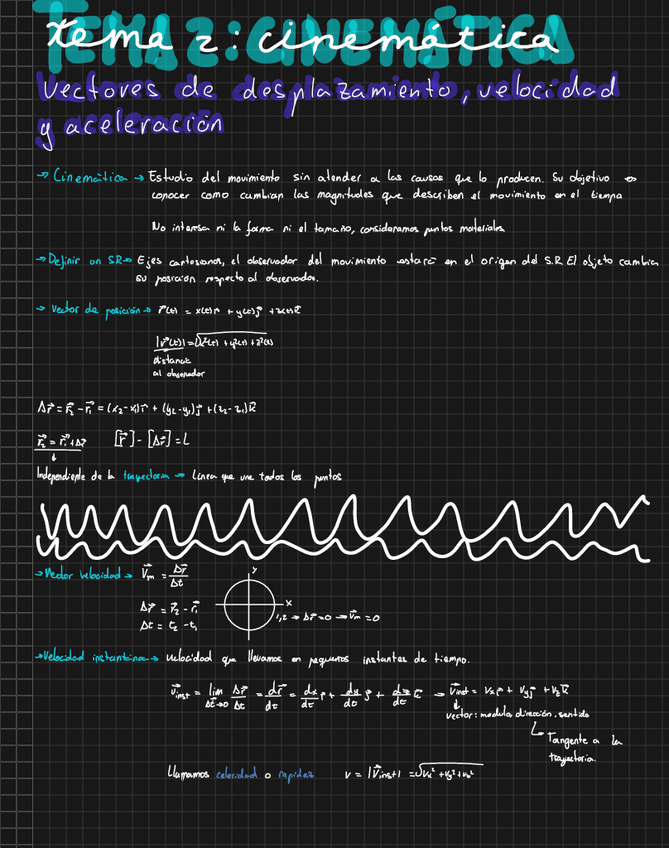 TEMA 2: CINEMÁTICA
tema 2: cinemática
Vectores de desplazamiento, velocidad
y aceleración
→ Cinemática → Estudio del movimiento sin atender a las causas que lo producen. Su objetivo es
conocer como cambian las magnitudes que describen el movimiento en el tiempo
No interesa ni la forma ni el tamaño, consideramos puntos materiales
→ Definir un SR → Ejes cartesianos, el observador del movimiento estará en el origen del S.R. El objeto cambia
su posición respecto al observador.
→ Vector de posición → r⃗(t) = x(t)i⃗ + y(t)j⃗ + z(t)k⃗
|r⃗(t)| = √(x²(t) + y²(t) + z²(t))
distancia
al observador
Δr⃗ = r⃗₂ - r⃗₁ = (x₂-x₁)i⃗ + (y₂-y₁)j⃗ + (z₂-z₁)k⃗
r⃗₂ = r⃗₁ + Δr⃗ [r⃗] - [Δr⃗] = L
↓
Independiente de la trayectoria → Línea que une todos los puntos
→ Vector velocidad → V⃗m = Δr⃗/Δt
y
x
Δr⃗ = r⃗₂ - r⃗₁
1,2 → Δr⃗ = 0 → V⃗m = 0
Δt = t₂ - t₁
→ Velocidad instantánea → Velocidad que llevamos en pequeños instantes de tiempo.
V⃗inst = lim Δt→0 Δr⃗/Δt = dr⃗/dt = dx/dt i⃗ + dy/dt j⃗ + dz/dt k⃗ → V⃗inst = Vx i⃗ + Vy j⃗ + Vz k⃗
↓
vector: modulo, dirección, sentido
↳ Tangente a la
trayectoria.
Llamamos celeridad o rapidez v = |V⃗inst| = √(Vx² + Vy² + Vz²)